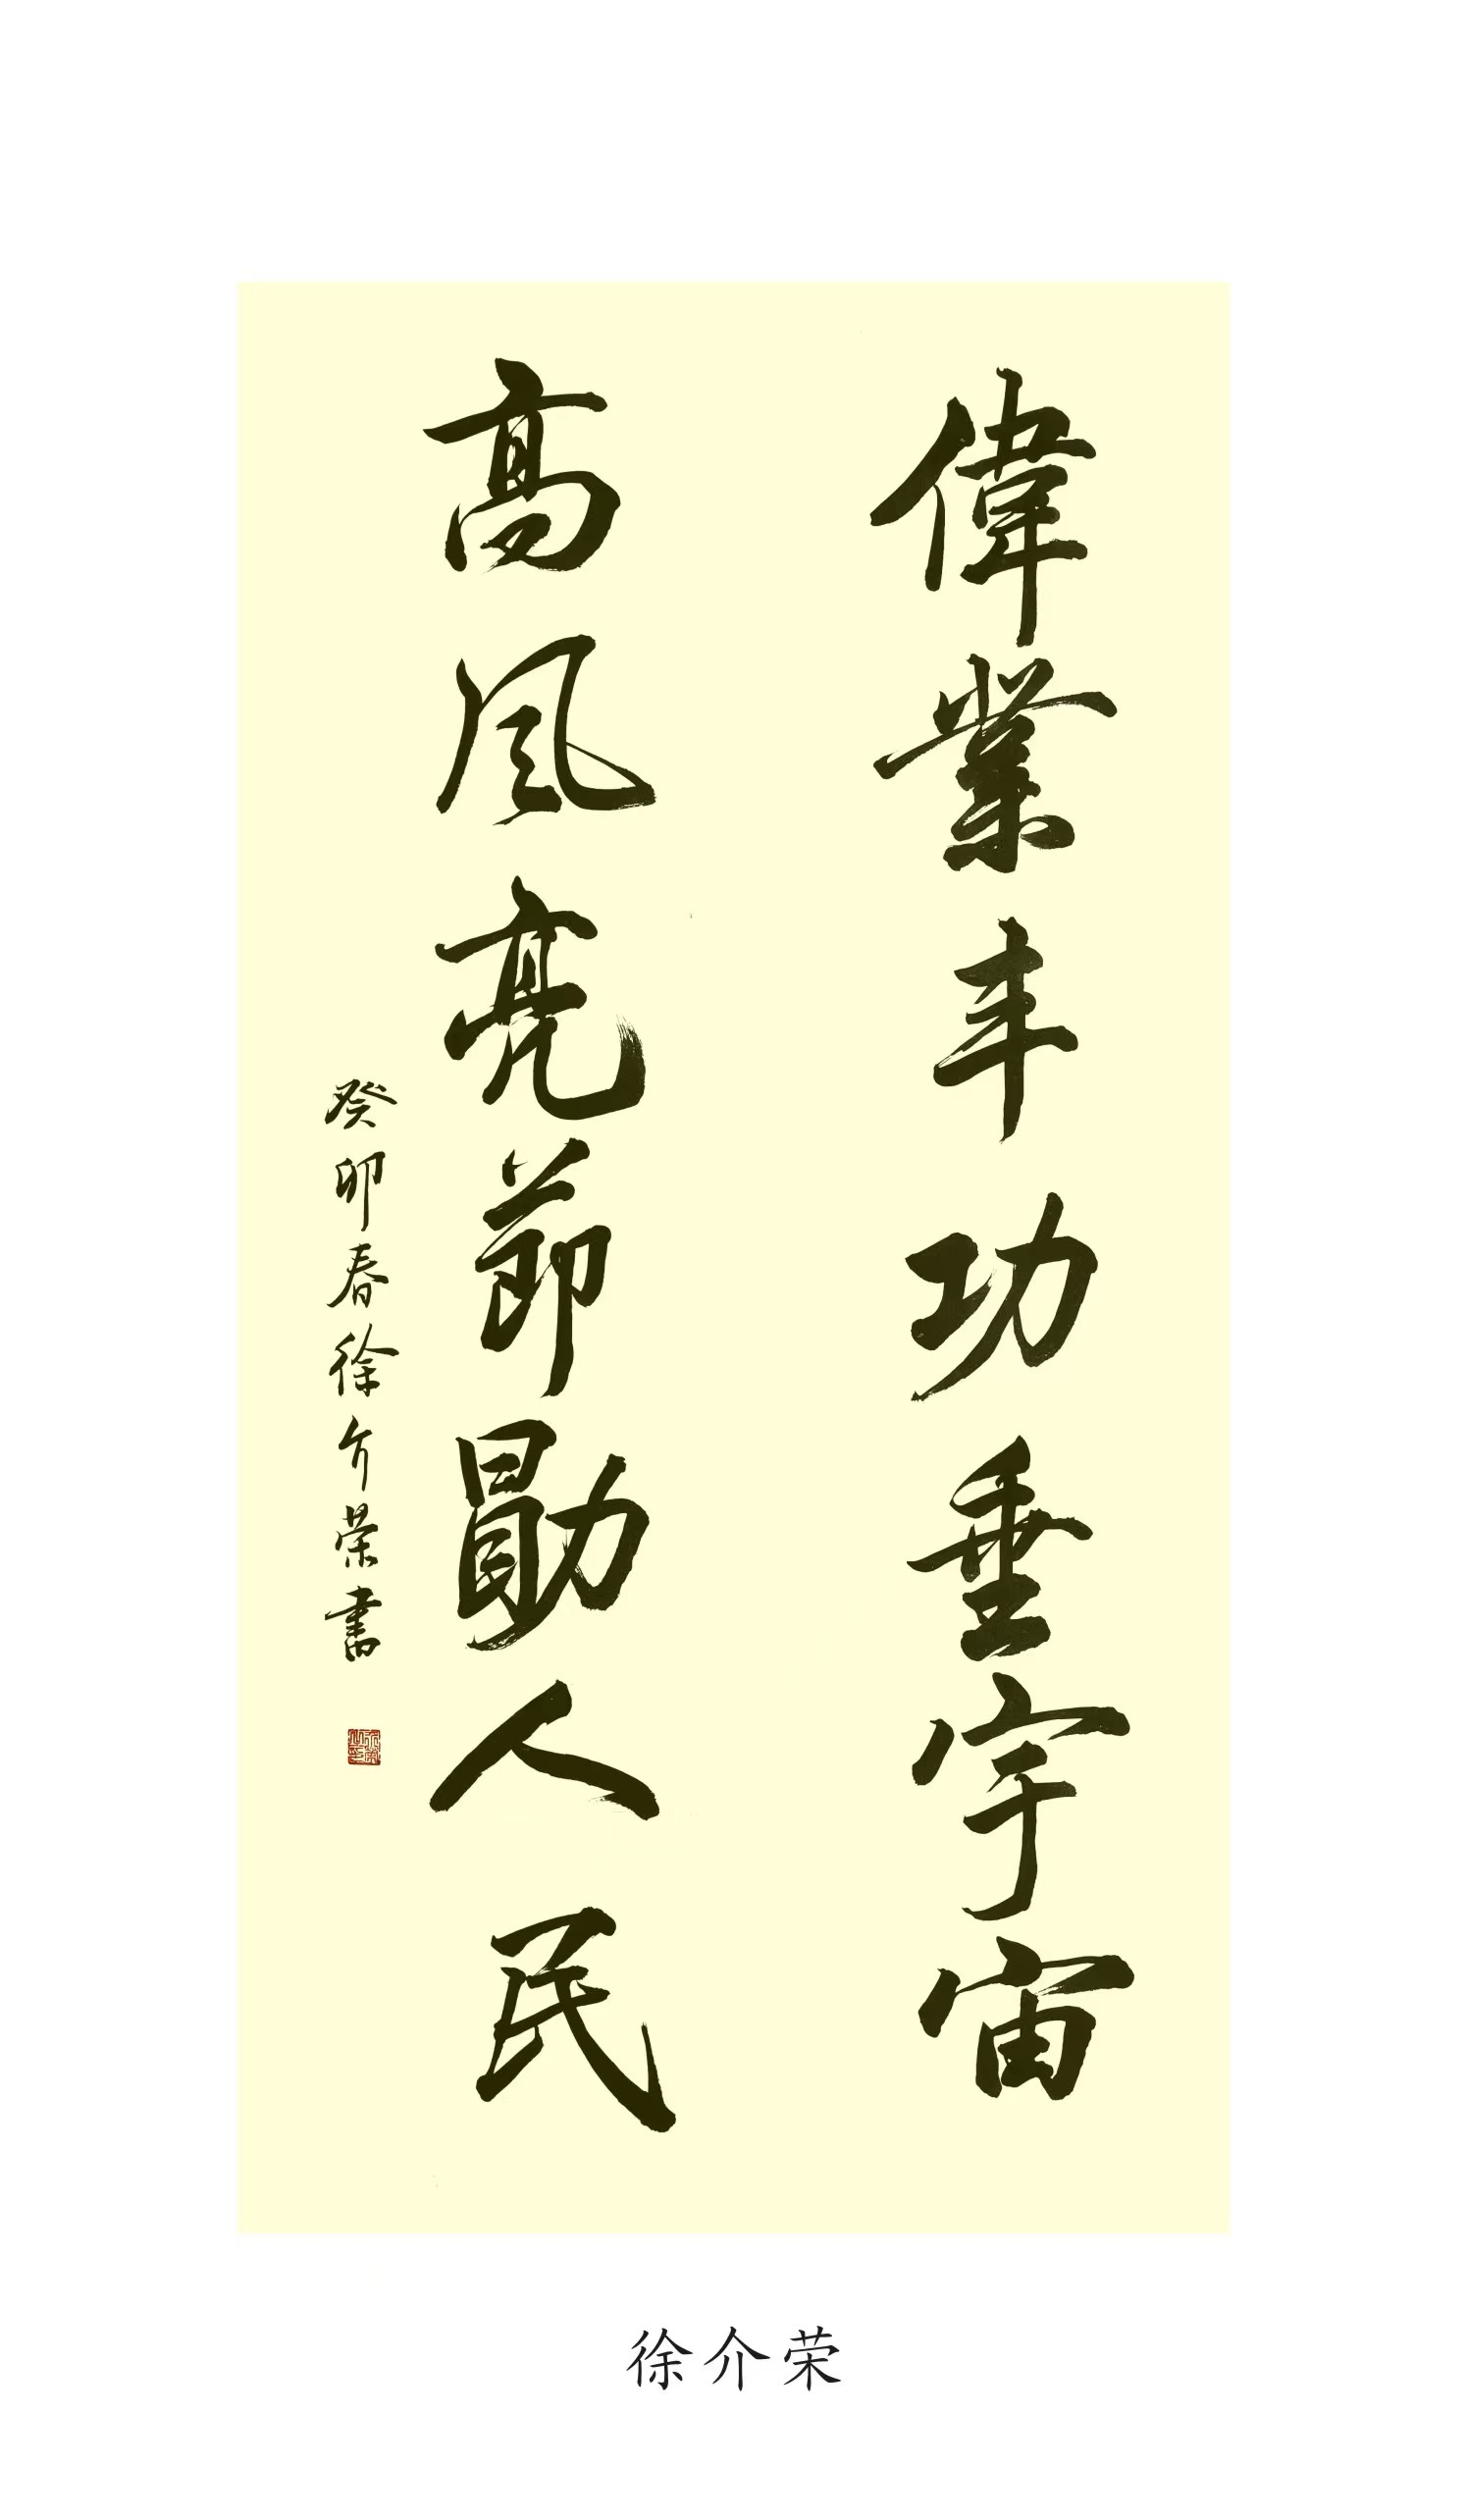 偉業丰功垂宇宙
高風亮節勖人民
癸卯春徐介榮書
徐介荣